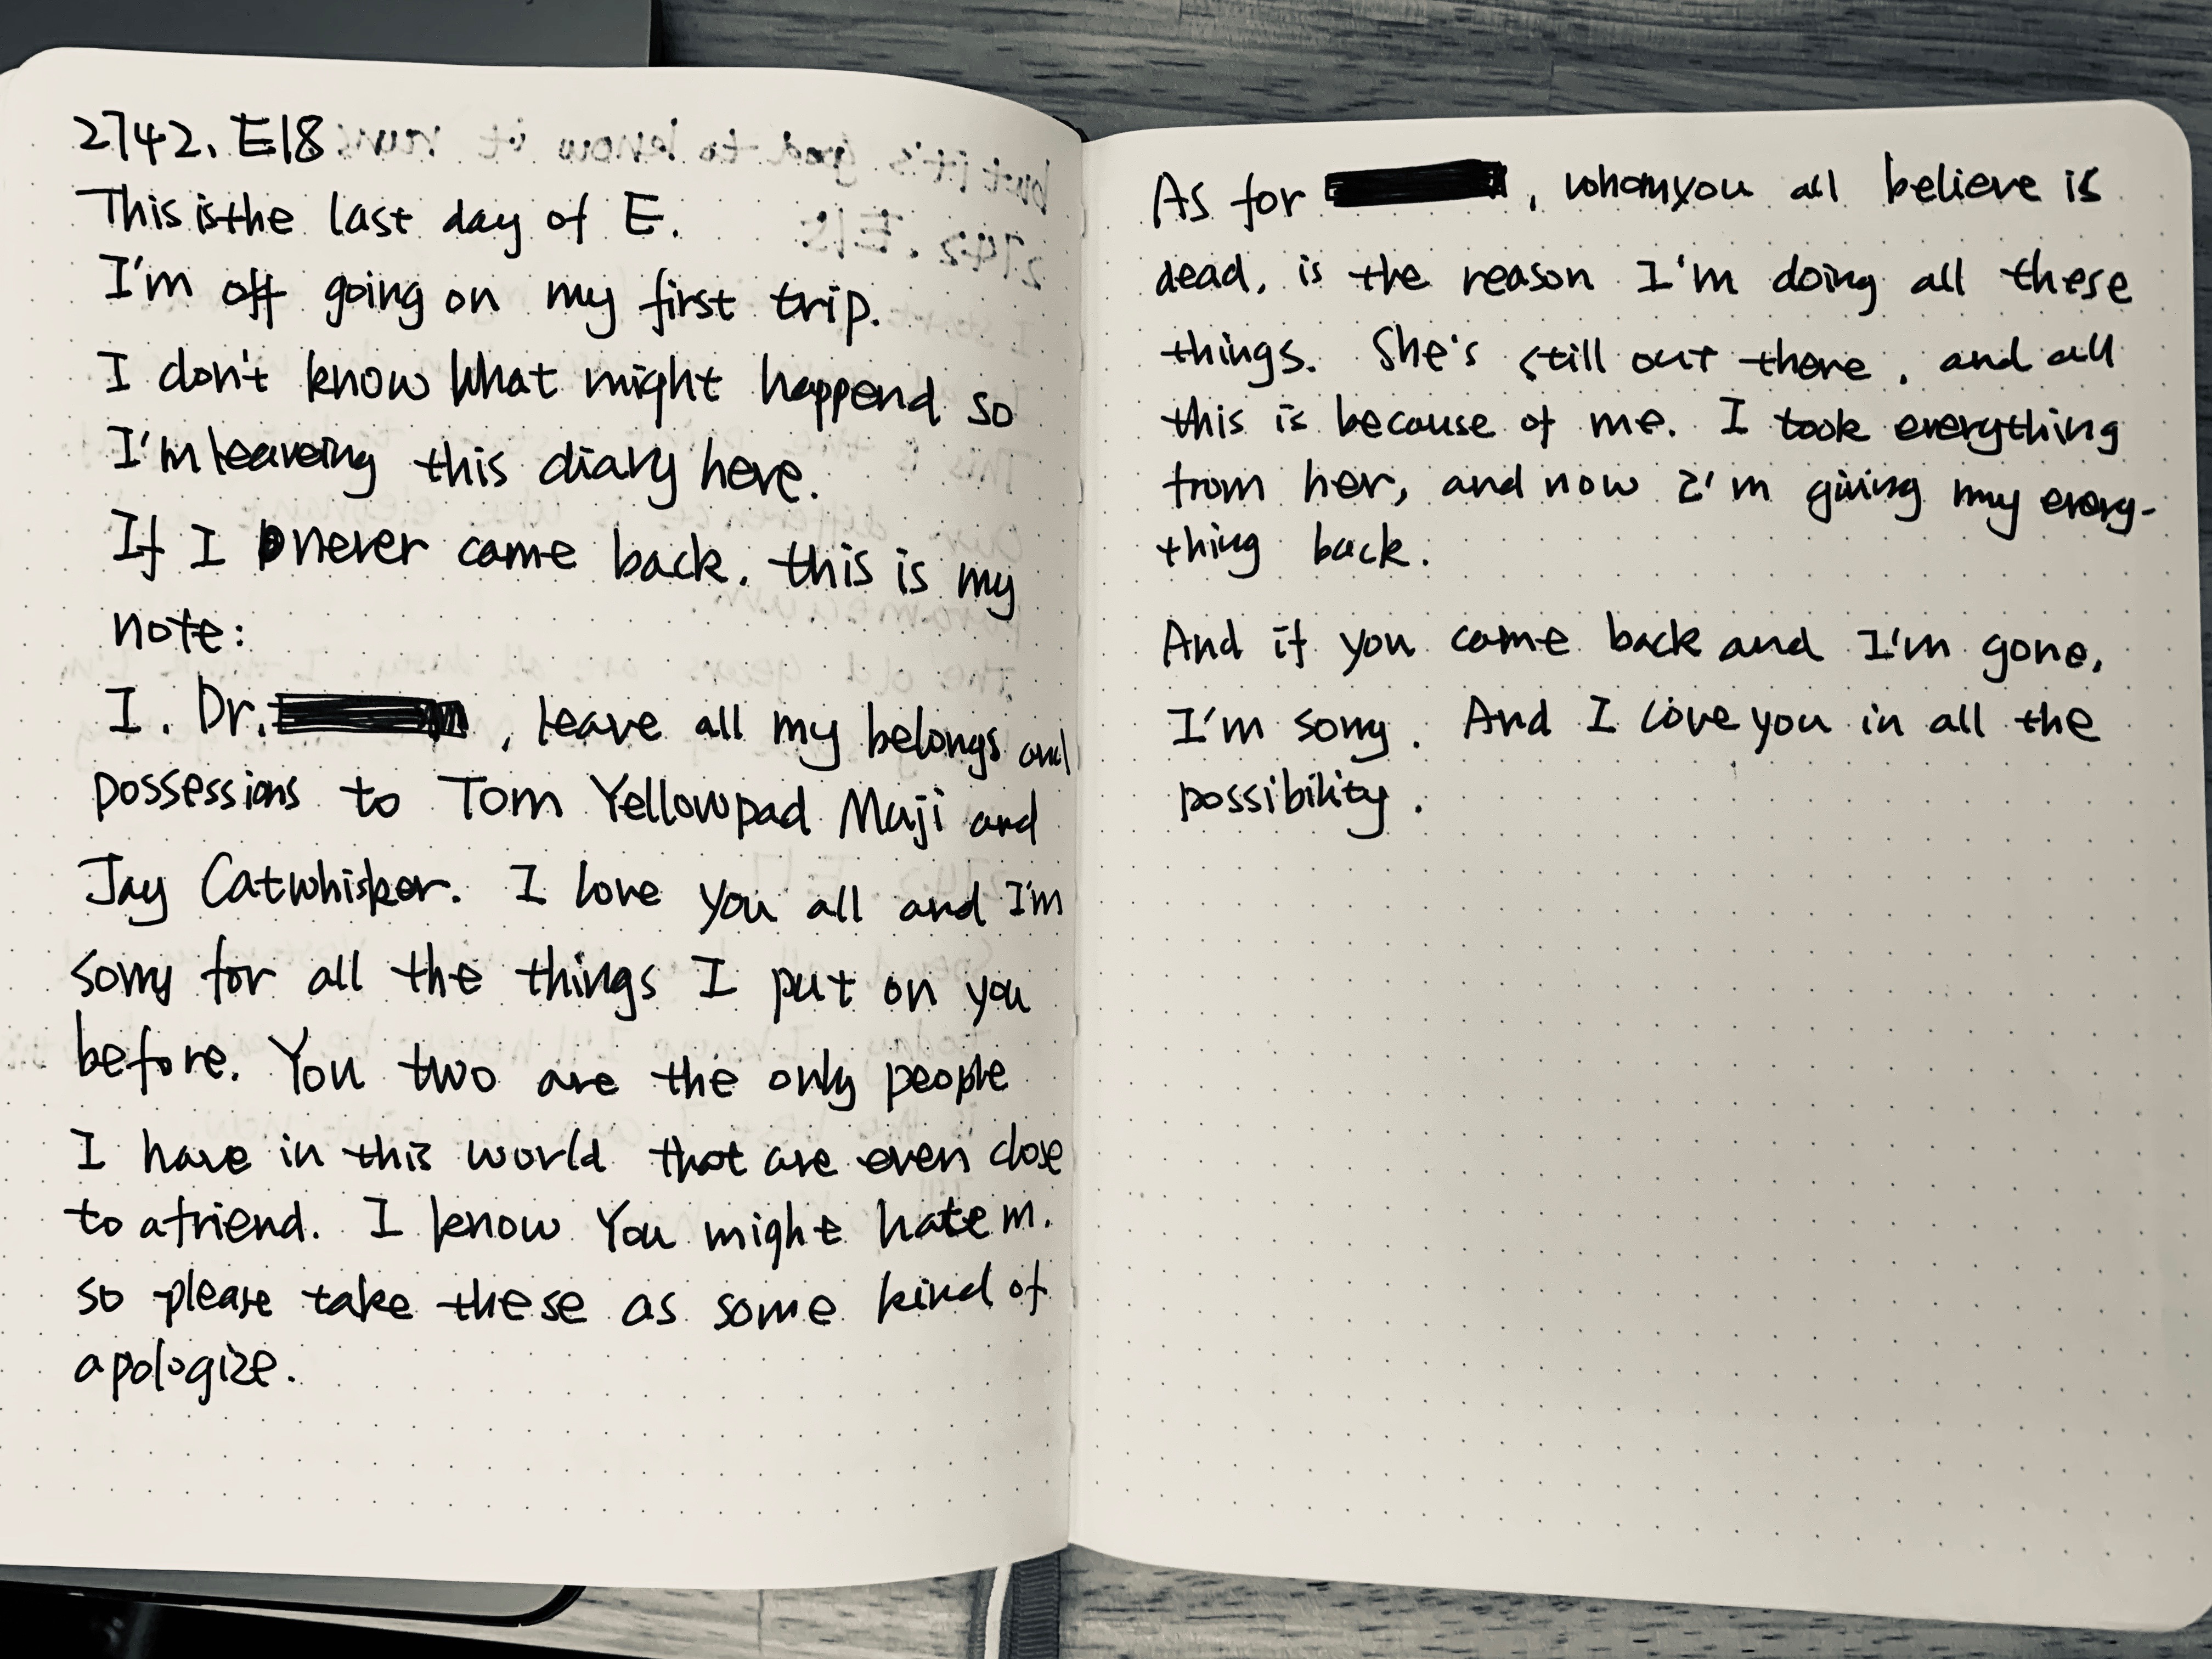 2742. E18
This is the last day of E.
I'm off going on my first trip.
I don't know what might happend so
I'm leaveing this diary here.
If I never came back. this is my
note:
I. Dr. , leave all my belongs and
possessions to Tom Yellowpad Muji and
Jay Catwhisker. I love you all and I'm
sorry for all the things I put on you
before. You two are the only people
I have in this world that are even close
to a friend. I know You might hate m.
so please take these as some kind of
apologize.
As for , whom you all believe is
dead, is the reason I'm doing all these
things. She's still out there, and all
this is because of me. I took everything
from her, and now I'm giving my every-
thing back.
And if you came back and I'm gone,
I'm sorry. And I love you in all the
possibility.